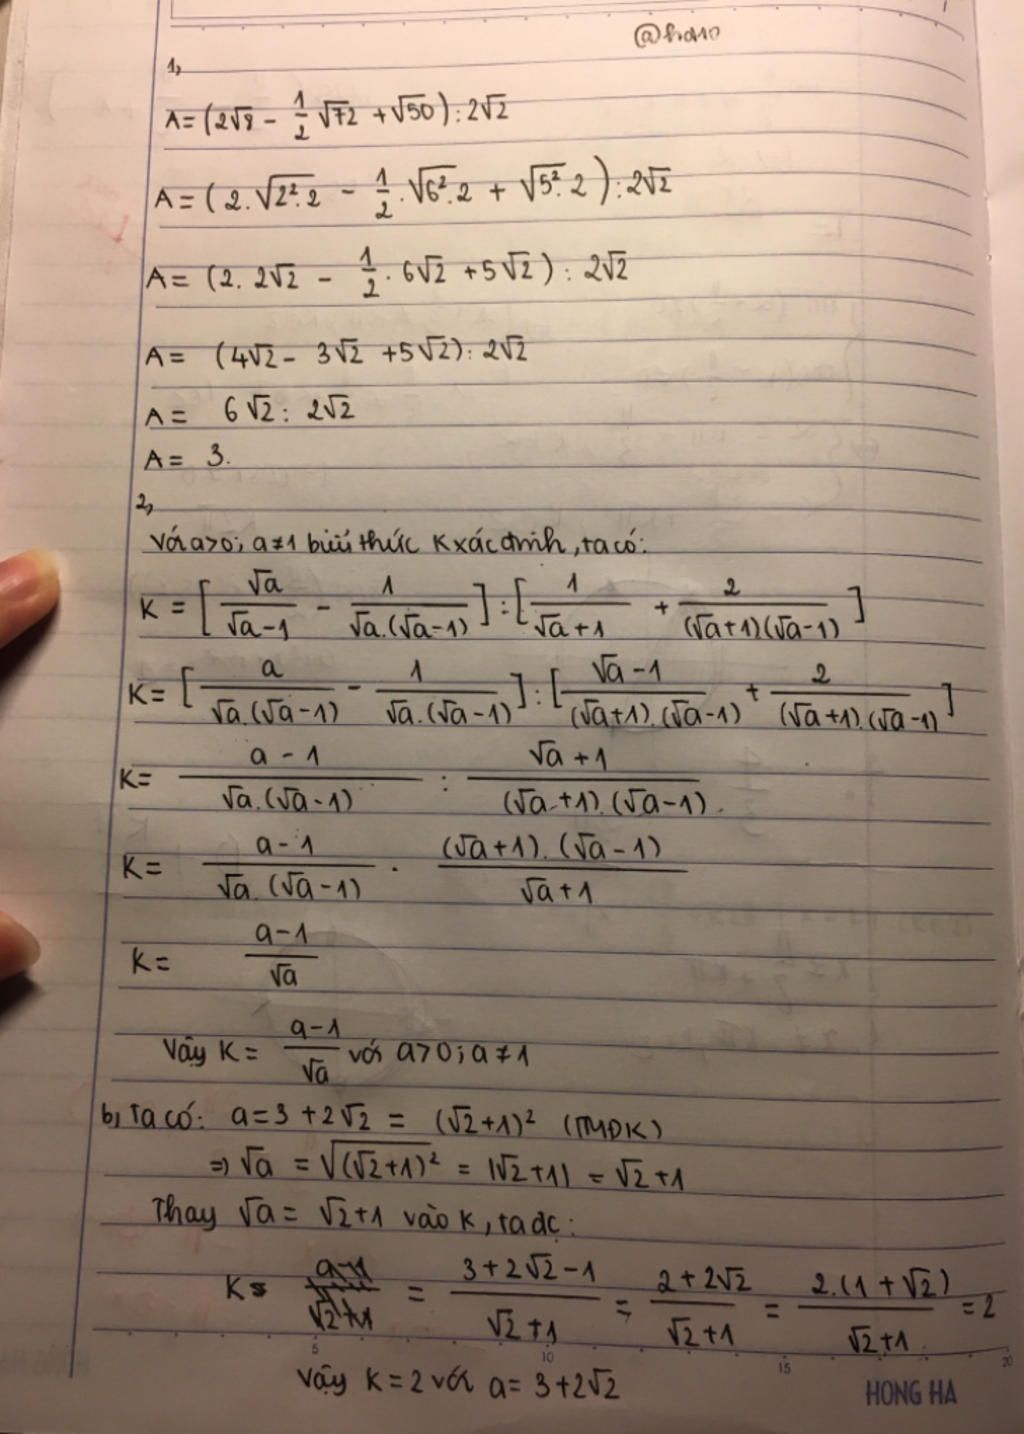 @hano
1,
A = (2√8 - 1/2 √72 + √50) : 2√2
A = (2.√2².2 - 1/2.√6².2 + √5².2) : 2√2
A = (2. 2√2 - 1/2. 6√2 + 5√2) : 2√2
A = (4√2 - 3√2 + 5√2) : 2√2
A = 6√2 : 2√2
A = 3.
2,
Với a>0; a≠1 biểu thức K xác định, ta có:
K = [√a/(√a-1) - 1/(√a.(√a-1))] : [1/(√a+1) + 2/((√a+1)(√a-1))]
K = [a/(√a.(√a-1)) - 1/(√a.(√a-1))] : [(√a-1)/((√a+1).(√a-1)) + 2/((√a+1).(√a-1))]
K = (a-1)/(√a.(√a-1)) : (√a+1)/((√a+1).(√a-1)).
K = (a-1)/(√a.(√a-1)) . ((√a+1).(√a-1))/(√a+1)
K = (a-1)/√a
Vậy K = (a-1)/√a với a>0; a≠1
b, Ta có: a = 3 + 2√2 = (√2+1)² (TMĐK)
⇒ √a = √(√2+1)² = |√2+1| = √2+1
Thay √a = √2+1 vào K, ta đc:
K = (3+2√2-1)/(√2+1) = (2+2√2)/(√2+1) = (2.(1+√2))/(√2+1) = 2
5 10 15 20
Vậy K = 2 với a = 3+2√2
HONG HA